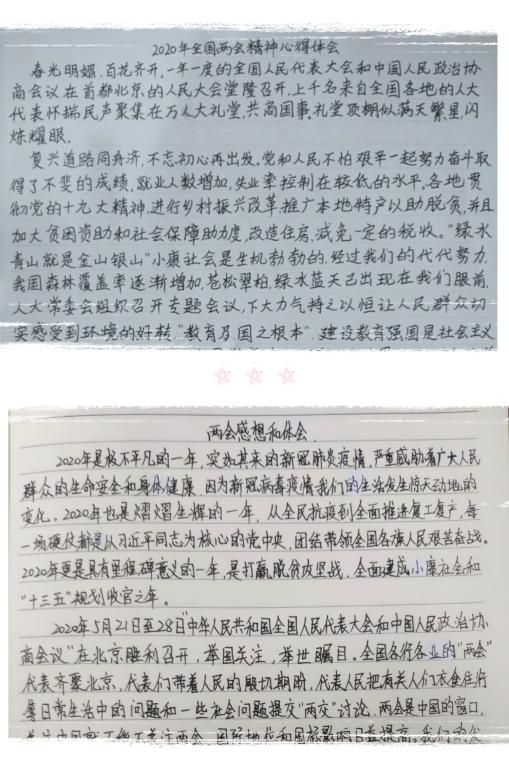 2020年全国两会精神心得体会
春光明媚,百花齐开,一年一度的全国人民代表大会和中国人民政治协
商会议在首都北京的人民大会堂隆召开,上千名来自全国各地的人大
代表怀揣民声聚集在万人大礼堂,共商国事,礼堂顶棚似满天繁星,闪
烁耀眼。
复兴道路同舟济,不忘初心再出发,党和人民不怕艰辛一起努力奋斗取
得了不斐的成绩,就业人数增加,失业率控制在较低的水平,各地贯
彻党的十九大精神,进行乡村振兴改革,推广本地特产以助脱贫,并且
加大贫困资助和社会保障助力度,改造住房,减免一定的税收。"绿水
青山就是金山银山"小康社会是生机勃勃的,经过我们的代代努力,
我国森林覆盖率逐渐增加,苍松翠柏,绿水蓝天已出现在我们眼前,
人大常委会组织召开专题会议,下大力气持之以恒让人民群众切
实感受到环境的好转,"教育乃国之根本",建设教育强国是社会主义
两会感想和体会
2020年是极不平凡的一年,突如其来的新冠肺炎疫情,严重威胁着广大人民
群众的生命安全和身体健康,因为新冠病毒疫情我们的生活发生惊天动地的
变化。2020年也是熠熠生辉的一年,从全民抗疫到全面推进复工复产,每
一场硬仗都是以习近平同志为核心的党中央,团结带领全国各族人民艰苦奋战。
2020年更是具有里程碑意义的一年,是打赢脱贫攻坚战,全面建成小康社会和
"十三五"规划收官之年。
2020年5月21日至28日"中华人民共和国全国人民代表大会和中国人民政治协
商会议"在北京胜利召开,举国关注,举世瞩目。全国各行各业的"两会"
代表齐聚北京,代表们带着人民的殷切期盼,代表人民把有关人们衣食住行
等日常生活中的问题和一些社会问题提交"两交"讨论,两会是中国的窗口,